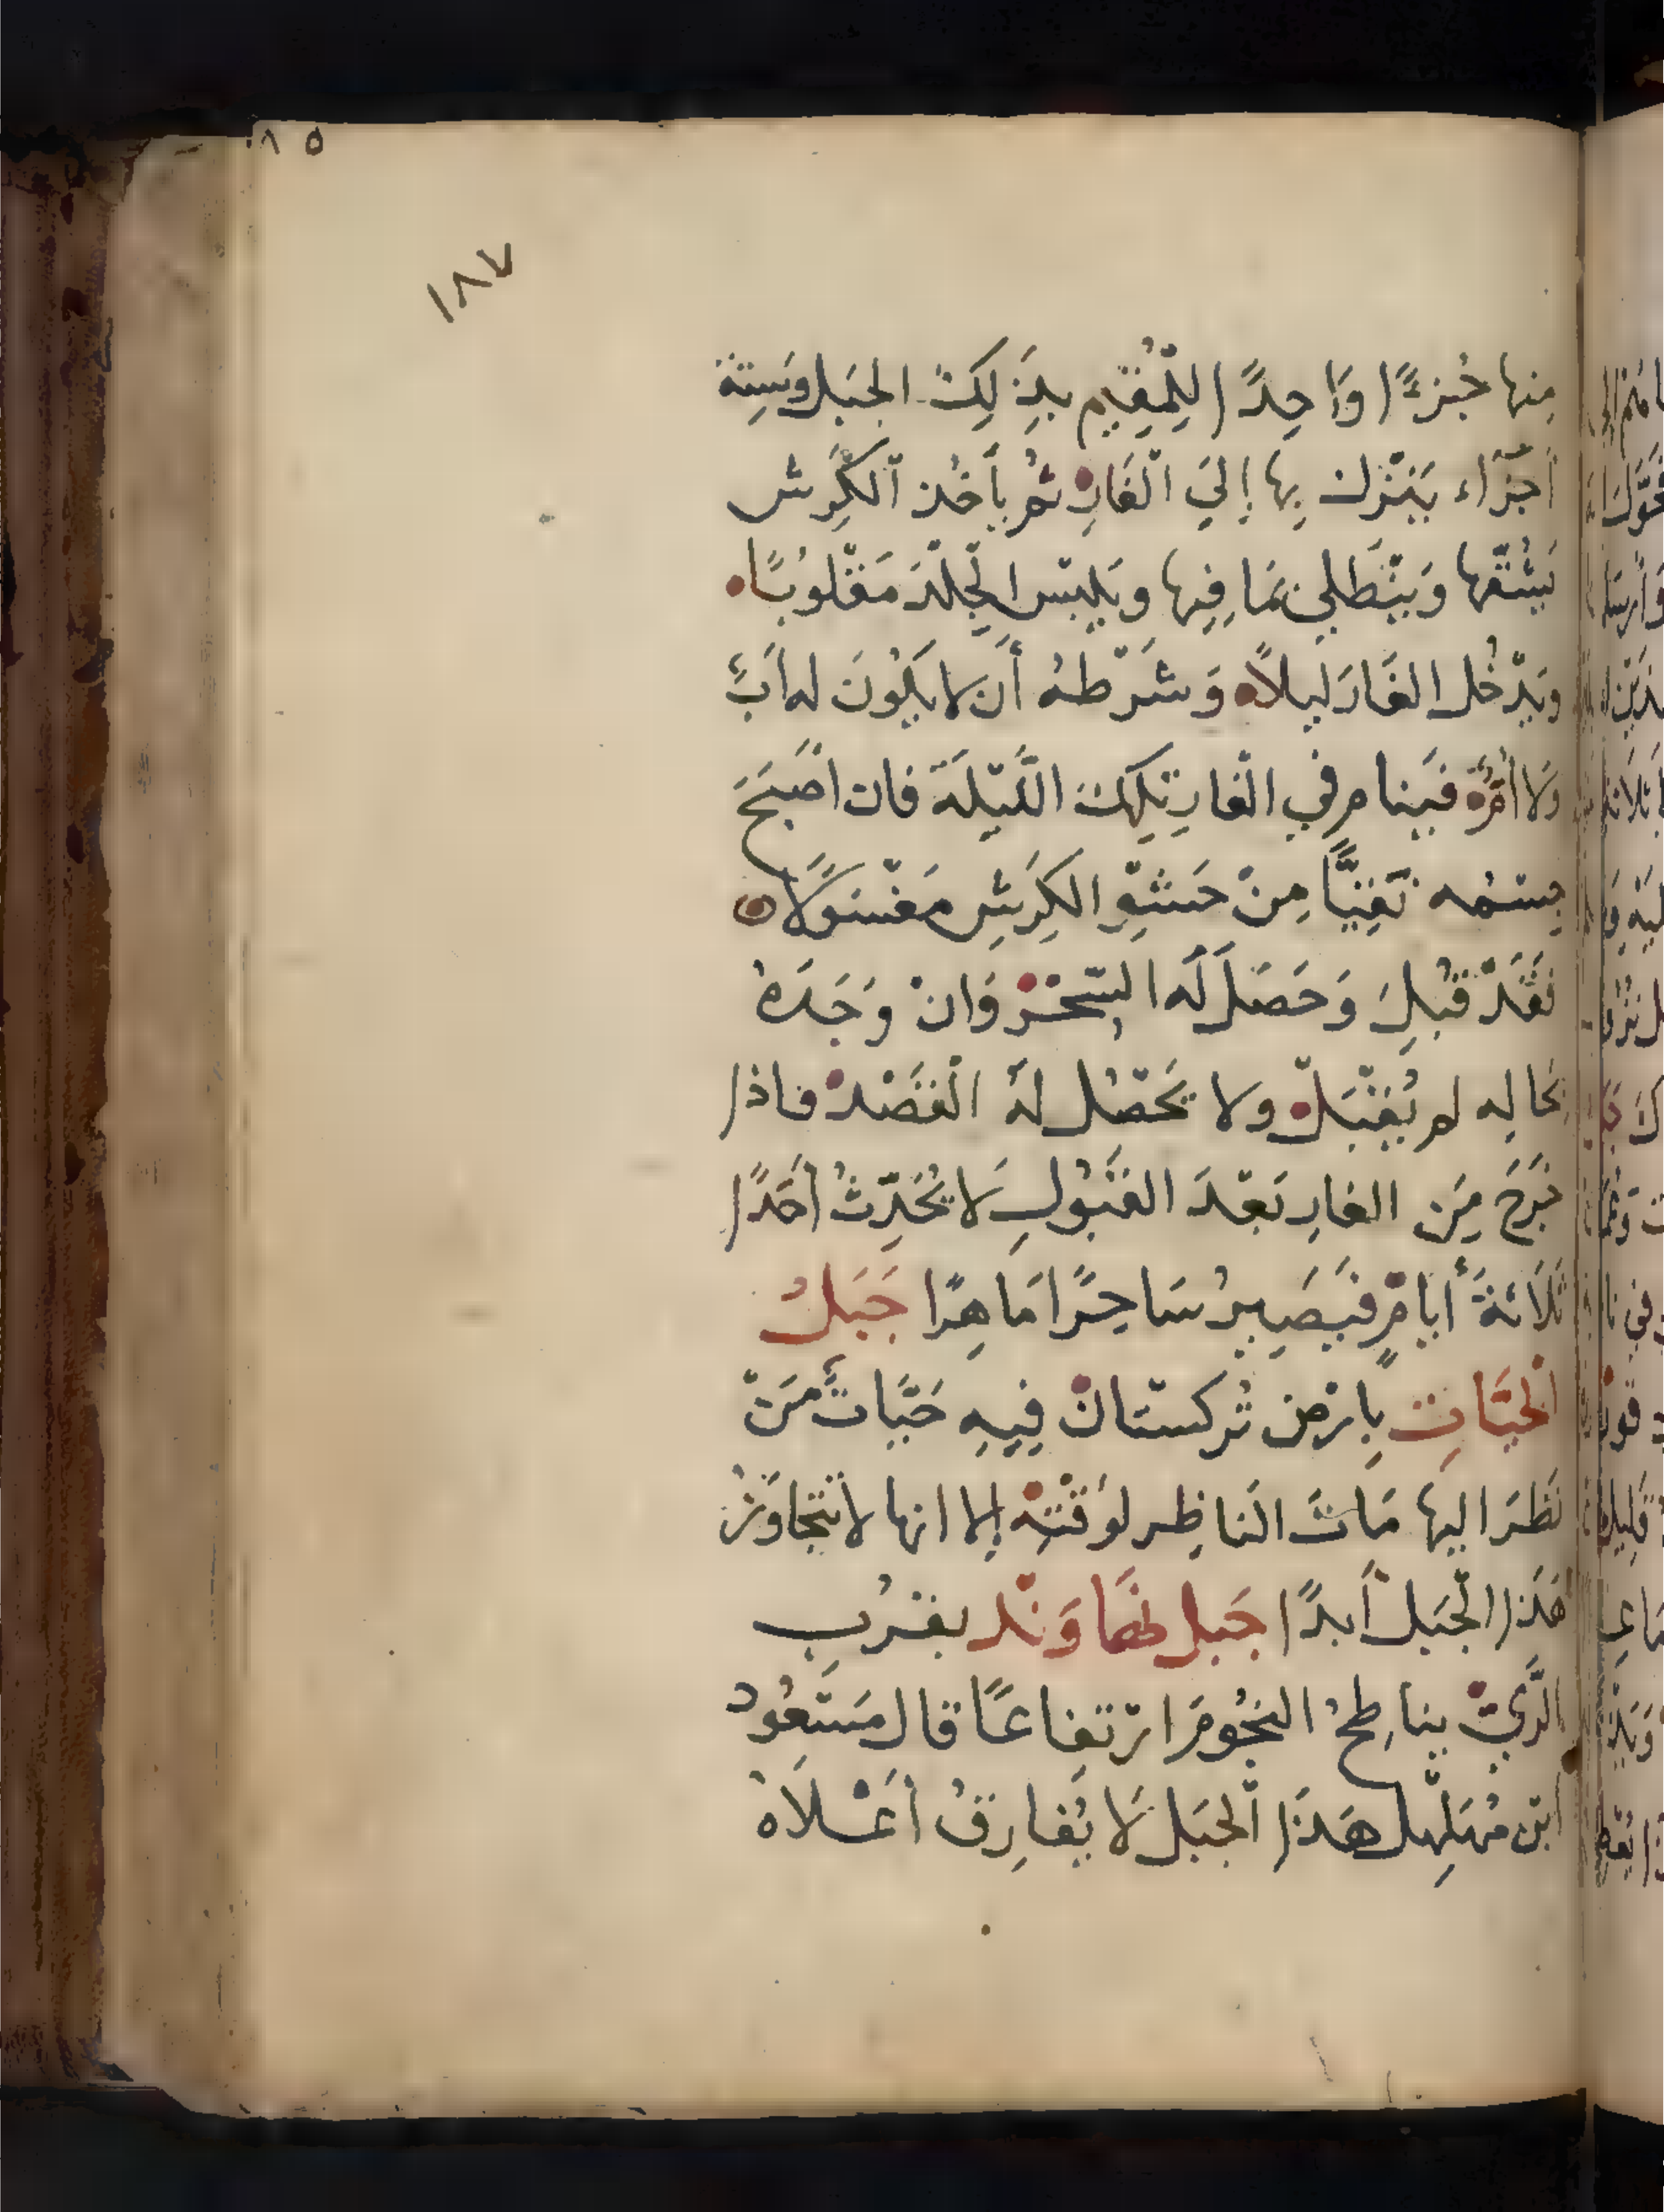 ٨٥
١٨٧
مِنها جُزءًا وَاحِدًا لِلْمُقِيم بذَلِكَ الجَبل وَسِتة
أجْزَاء يَنْزل بِها إلىَ الْغَارِ ثم يأخُذ الكَرِش
يَشُقّها وَيَنْطَلي بمَا فِيها وَيلبَس الجِلْدَ مَقْلوبًا
وَيدْخُل الغَارَ ليلاً وَشَرْطهُ أن لا يكُونَ له أبٌ
وَلا أمٌّ فيَنام في الْغارِ تِلكَ اللَّيْلَة فان أصْبَحَ
جسمُه نَقِيًّا مِنْ حَشْوِ الكِرَشِ مَغْسولاً
فقَدْ قُبِلَ وَحَصَلَ لَه السِّحْرُ وَانْ وَجَدَهُ
بحَالِه لم يُقْبَلْ ولا يَحْصُل لهُ الْقَصْدُ فاذا
خَرَجَ مِنَ الغارِ بَعْدَ القَبُولِ لَا يُحَدِّثُ أحَدًا
ثَلَاثَةَ أيامٍ فيَصِيرُ سَاحِرًا مَاهِرًا جَبَلُ
الْحَيَّاتِ بِارْضِ تُركستانْ فِيهِ حَيَّاتٌ مَنْ
نَظَرَ اليهَا مَاتَ النَاظِر لوَقْتِهْ إلا انها لا تتجاوَزُ
هَذا الْجَبَل أبدًا جَبل نَهَاوَنْد بقُرْب
الرَّيْ يناطِحُ النجُومَ ارْتفِاعًا قال مَسْعُود
ابْن مُهَلهِل هَذَا الْجبَل لَا يُفارِقُ أعْلَاهُ